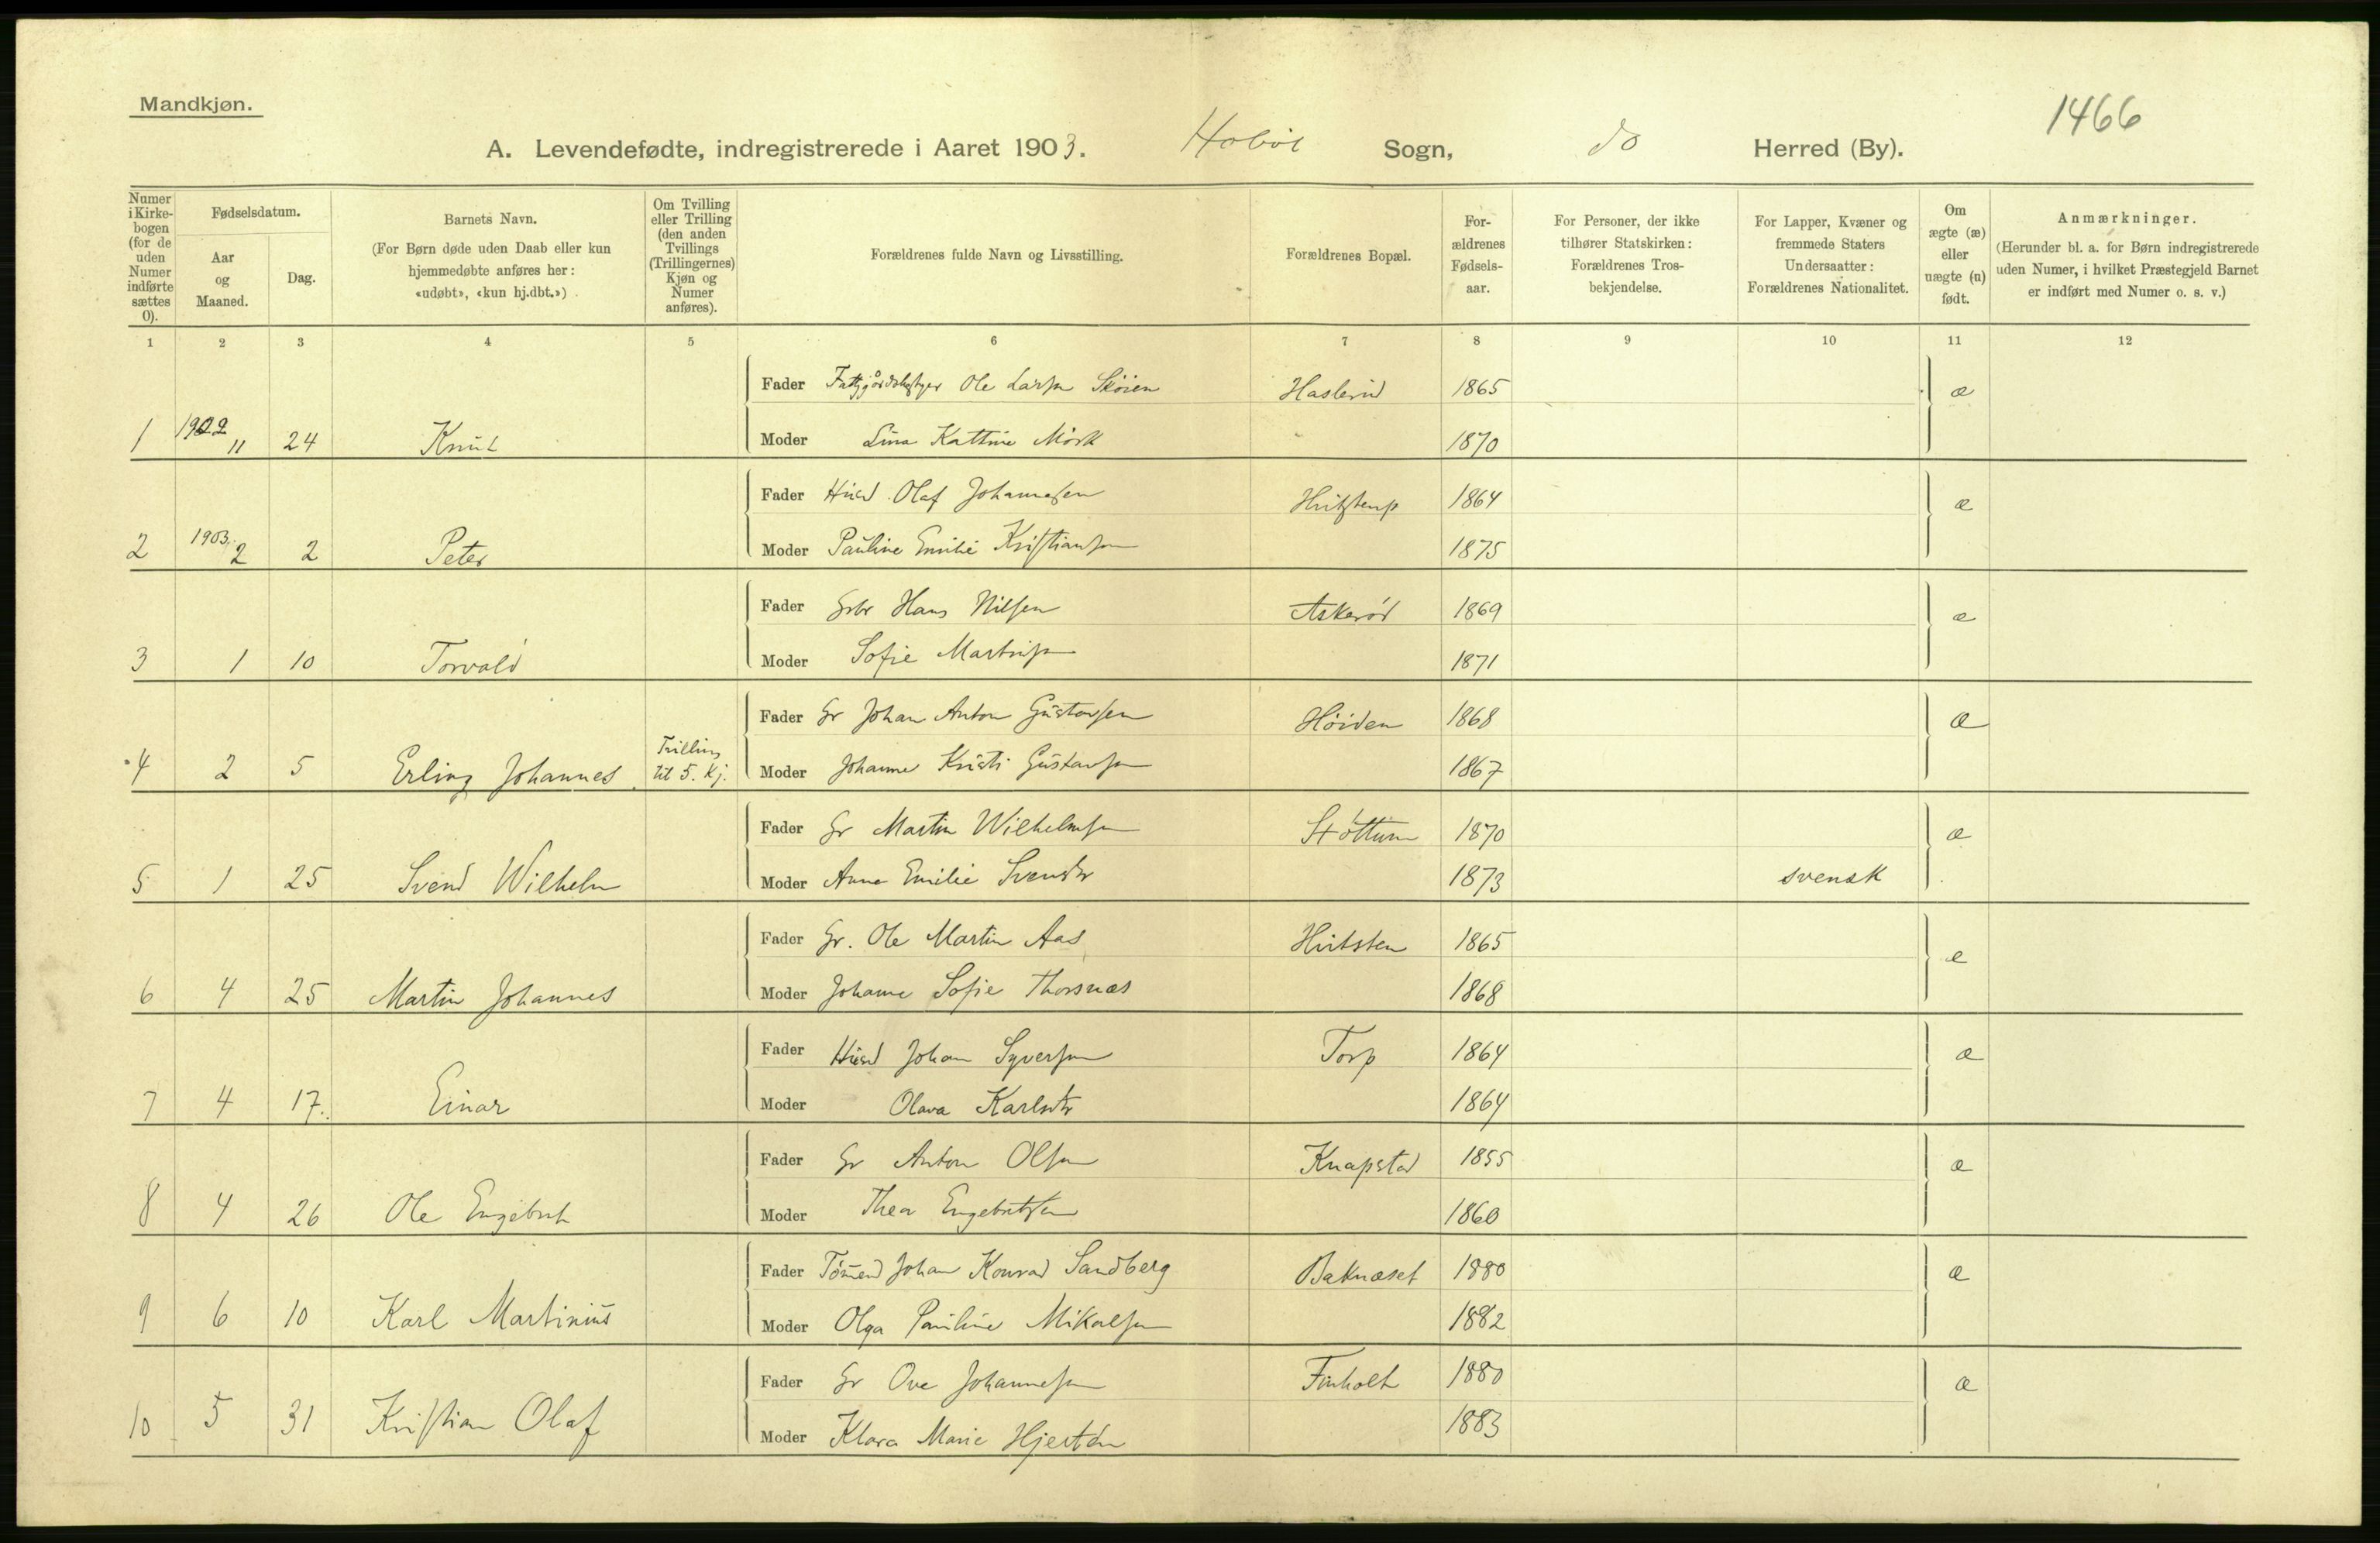 Mandkjøn.
1466
A. Levendefødte, indregistrerede i Aaret 1903. Hobøl Sogn, do Herred (By).
Numer i Kirke-bogen (for de uden Numer indførte sættes 0).
Fødselsdatum.
Aar og Maaned.
Dag.
Barnets Navn.
(For Børn døde uden Daab eller kun hjemmedøbte anføres her: «udøbt», «kun hj.dbt.»)
Om Tvilling eller Trilling (den anden Tvillings (Trillingernes) Kjøn og Numer anføres).
Forældrenes fulde Navn og Livsstilling.
Forældrenes Bopæl.
For-ældrenes Fødsels-aar.
For Personer, der ikke tilhører Statskirken: Forældrenes Tros-bekjendelse.
For Lapper, Kvæner og fremmede Staters Undersaatter: Forældrenes Nationalitet.
Om ægte (æ) eller uægte (u) født.
Anmærkninger.
(Herunder bl. a. for Børn indregistrerede uden Numer, i hvilket Præstegjeld Barnet er indført med Numer o. s. v.)
1 2 3 4 5 6 7 8 9 10 11 12
Fader Ole Larsen Sköien Haslerud 1865 æ
1 1902 11 24 Knut Moder Lina Mörk 1870
Fader Husm Olaf Johannesen 1864 æ
2 1903 2 2 Peter Moder Pauline Emilie Kristiansen 1875
Fader Gbr Hans Nilsen Askeröd 1869 æ
3 1 10 Torvald Moder Sofie Martinsen 1871
Fader Gr Johan Anton Gustavsen Höiden 1868 æ
4 2 5 Erling Johannes Trilling til 5. Kj. Moder Johanne Kristi Gustavsen 1867
Fader Gr Martin Wilhelmsen Stöttum 1870 æ
5 1 25 Svend Wilhelm Moder Anne Emilie Svendsdr 1873 svensk
Fader Gr. Ole Martin Aas Hvitsten 1865 æ
6 4 25 Martin Johannes Moder Johanne Sofie Thorsnæs 1868
Fader Husm Johan Syversen Torp 1864 æ
7 4 17. Einar Moder Olava Karlsdtr 1864
Fader Gr Anton Olsen Knapstad 1855 æ
8 4 26 Ole Engebret Moder Thea Engebretsen 1860
Fader Tömmerm Johan Konrad Sandberg Baknæset 1880 æ
9 6 10 Karl Martinius Moder Olga Pauline Mikalsen 1882
Fader Gr Ove Johannesen Finholt 1880 æ
10 5 31 Kristian Olaf Moder Klara Marie 1883